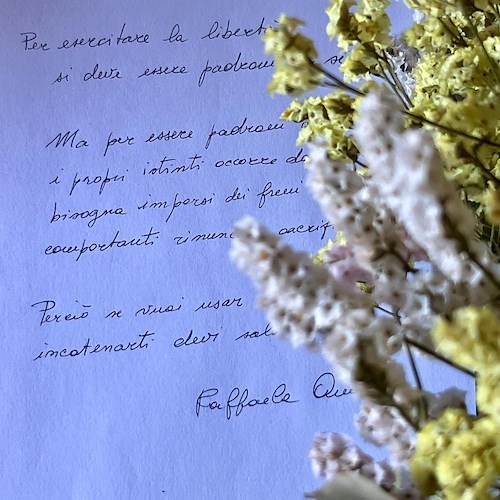 Per esercitare la libertà
si deve essere padroni
Ma per essere padroni
i propri istinti occorre
bisogna imporsi dei freni
comportanti
Perciò se vuoi usar
incatenarti devi
Raffaela